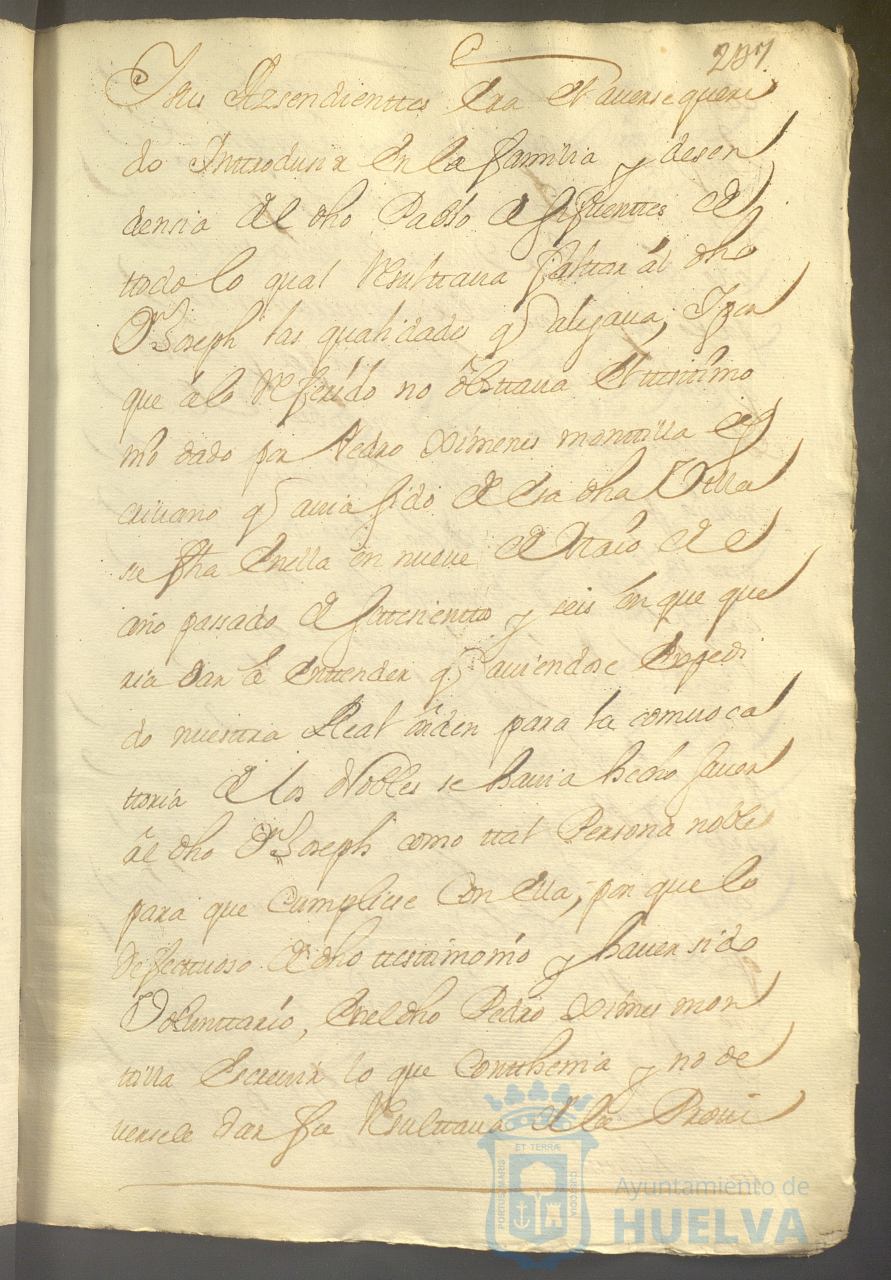 207
Y sus Aszendienttes Era El averse queri
do Inttroducir En la familia y desen
dencia del dho Pablo de Sifuenttes de
ttodo lo qual Resulttava faltar al dho
Dn Joseph las qualidades q alegava; Y por
que á lo Referido no obsttava El ttesttimo
nio dado por Pedro Ximenes monttilla es
crivano q avia sido de esa dha Villa
su fha En ella en nueve de Maio de el
año passado de settesientto y seis en que que
ria dar a Enttender q aviendose Expedi
do nuesttra Real orden para la comvoca
ttoria de los Nobles se havia hecho saver
al dho Dn Joseph como ttal Persona noble
para que Cumpliese Con Ella, por que lo
defecttuoso de dho testtimonio y haver sido
Volunttario, En el dho Pedro Ximes mon
ttilla Escrivir lo que Conthenia y no de
versele dar fee Resulttava de la Provi
PORTUS MARIS ET TERRÆ CUSTODIA
Ayuntamiento de
HUELVA